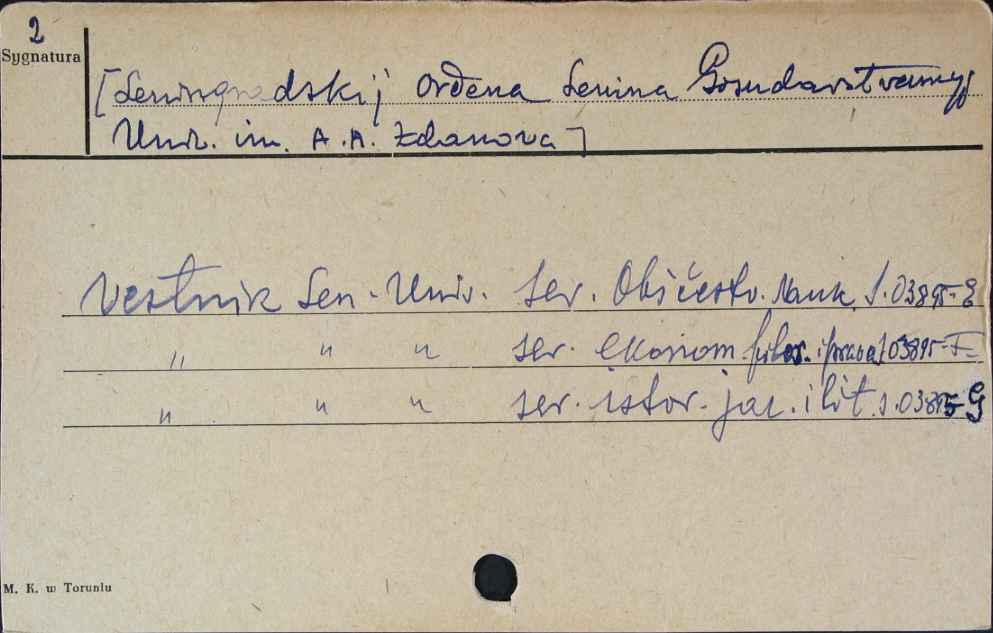 2
Sygnatura
[Leningradskij Ordena Lenina Gosudarstvennyj
Univ. im. A.A. Żdanova]
Vestnik Len. Univ. Ser. Obščestv. Nauk S.03895-E
" " " ser. ekonom filos. i prava S 03895-F
" " " ser. istor. jaz. i lit. s.03895-G
M. K. w Toruniu